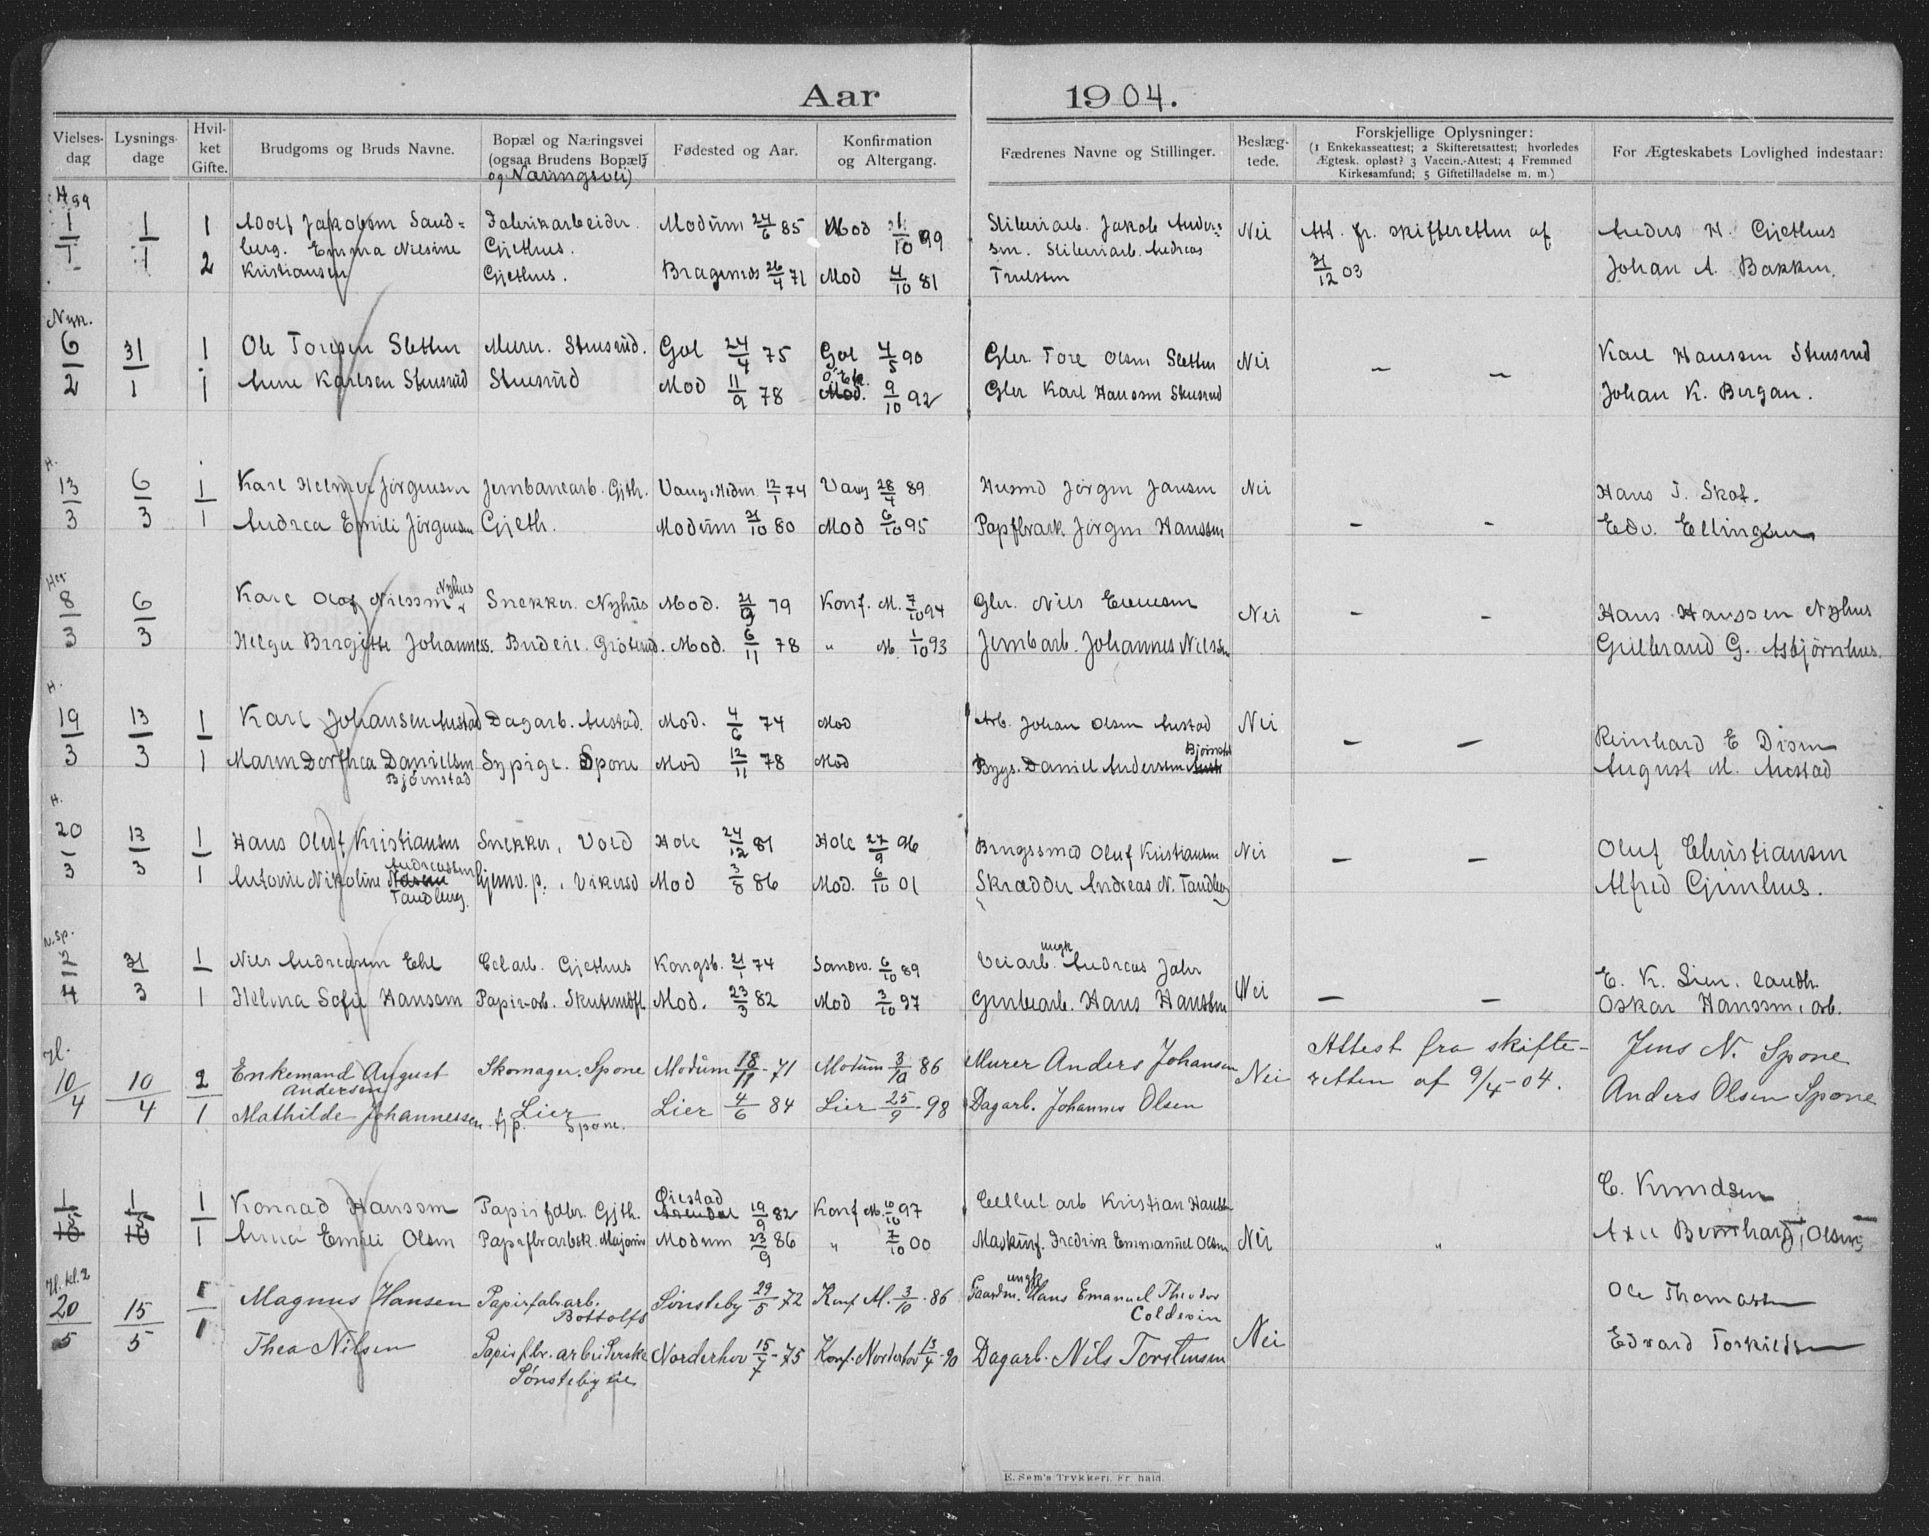 Aar 1904.
Vielses-dag Lysnings-dage Hvil-ket Gifte. Brudgoms og Bruds Navne. Bopæl og Næringsvei (ogsaa Brudens Bopæl og Næringsvei) Fødested og Aar. Konfirmation og Altergang. Fædrenes Navne og Stillinger. Beslæg-tede. Forskjellige Oplysninger: (1 Enkekasseattest; 2 Skifteretsattest; hvorledes Ægtesk. opløst? 3 Vaccin.-Attest; 4 Fremmed Kirkesamfund; 5 Giftetilladelse m. m.) For Ægteskabets Lovlighed indestaar:
1/1 1/1 1 Adolf Jakobsen Sand= Fabrikarbeider. Modum 24/6 85 Mod 1/10 99 Sliberiarb. Jakob Ander= Nei Att. fr. skifteretten af Anders H. Gjethus
berg. Emma Nilsine Gjethus. sen. Sliberiarb. Andreas
2 Kristiansen Gjethus. Bragernes 26/4 71 Mod 4/10 81 Trulssen 31/12 03 Johan A. Bakken.
Nyk.
6/2 31/1 1 Ole Toresen Sletten Murer. Stusrud. Gol 24/4 75 Gol 4/5 90 Gbr. Tore Olsen Sletten Nei – – Karl Hanssen Stusrud
1 Anne Karlsen Stusrud Stusrud Mod 11/9 78 Mod. 9/10 92 Gbr Karl Hanssen Stusrud Johan K. Bergan.
H.
13/3 6/3 1 Karl Helmer Jörgensen Jernbanearb. Gjth. Vang, Hedm 12/1 74 Vang 28/4 89 Husmd Jörgen Jansen Nei Hans J. Skot.
1 Andrea Emili Jörgensen Gjeth. Modum 21/10 80 Mod 6/10 95 Papfbrarb Jörgen Hanssen – – Edv. Ellingsen
8/3 6/3 Karl Olaf Nilssen Nyhus Snekker. Nyhus Mod. 21/9 79 Konf. M. 7/10 94 Gbr. Nils Evensen Nei – – Hans Hanssen Nyhus
Helga Birgitte Johanness. Budeie. Gröterud. Mod. 6/11 78 " M. 1/10 93 Jernbarb. Johannes Nilsen Gulbrand G. Asbjørnhus.
H.
19/3 13/3 1 Karl Johansen Austad Dagarb. Austad. Mod. 4/6 74 Mod Arb. Johan Olsen Austad Nei – – Reinhard E Disen
1 Maren Dorthea Danielsen Bjørnstad Sypige. Spone Mod 12/11 78 Mod Bygs. Daniel Anderssen Bjørnstd August M. Austad
H.
20/3 13/3 1 Hans Oluf Kristiansen Snekker, Vold Hole 24/12 81 Hole 27/9 96 Brugssmed Oluf Kristiansen Nei – – Oluf Christiansen
1 Antonie Nikoline Andreassen Tandberg. Tjenv. p., Vikersd Mod 3/8 86 Mod. 6/10 01 Skrædder Andreas N. Tandberg Alfred Gjenhus.
N. Sp.
2/4 31/3 1 Nils Andreassen Ehl Celarb. Gjethus Kongsb. 21/1 74 Sandsv. 6/10 89 Veiarb. ungk Andreas Jahr Nei – – E. K. Lien. landh.
1 Helma Sofie Hansen Papirarb. Skutsmdfl. Mod. 23/3 82 Mod 3/10 97 Grubearb. Hans Hanssen Oskar Hanssen, arb.
H.
10/4 10/4 2 Enkemand August Andersen Skomager. Spone Modum 18/11 - 71 Modum 3/10 86 Murer Anders Johansen Nei Attest fra skifte- Jens N. Spone
1 Mathilde Johannessen Lier tj p. Spone. Lier 4/6 84 Lier 25/9 - 98 Dagarb. Johannes Olsen retten af 9/4 - 04. Anders Olsen Spone
1/15 1/15 1 Konrad Hanssen Papirfabr. Gjth. Øiestad Arendal 19/9 82 Konf M. 10/10 97 Cellul arb Kristian Hanssen C. Knudsen
1 Anna Emili Olsen Papirfbrarbsk. Majorn Modum 23/9 86 " 7/10 00 Maskinf. Fredrik Emmanuel Olsen Nei " Axel Bernhard Olsen
H. kl. 2
20/5 15/5 1 Magnus Hansen Papirfabr.arb. Bottolfs Sønsteby 29/5 - 72 Konf M. 3/10 - 86 Gaardm. ungk Hans Emanuel Theodor Coldevin Nei Ole Thomassen
1 Thea Nilsen Papirfbr. arbeiderske Sønsteby eie Norderhov 15/7 - 75 Konf. Norderhov 13/4 - 90 Dagarb. Nils Torstensen Edvard Torkildsen
E. Sem's Trykkeri, Fr. hald.